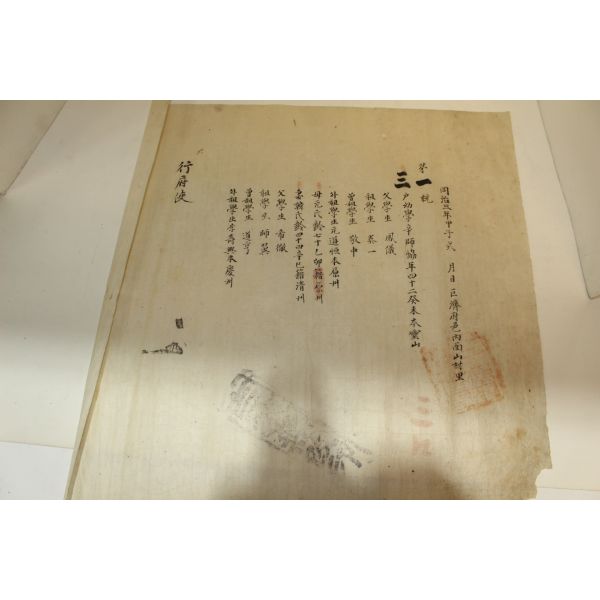 同治三年甲子式 月 日巨濟府邑內面山村里
第一統
三戶幼學辛師 年四十二癸未本靈山
父學生 鳳儀
祖學生 泰一
曾祖學生 敬中
外祖學生元道恒本原州
母元氏齡七十乙卯籍原州
妻韓氏齡四十四辛巳籍清州
父學生 希
祖學生 師翼
曾祖學生 道亨
外祖學生李壽 本慶州
行府使